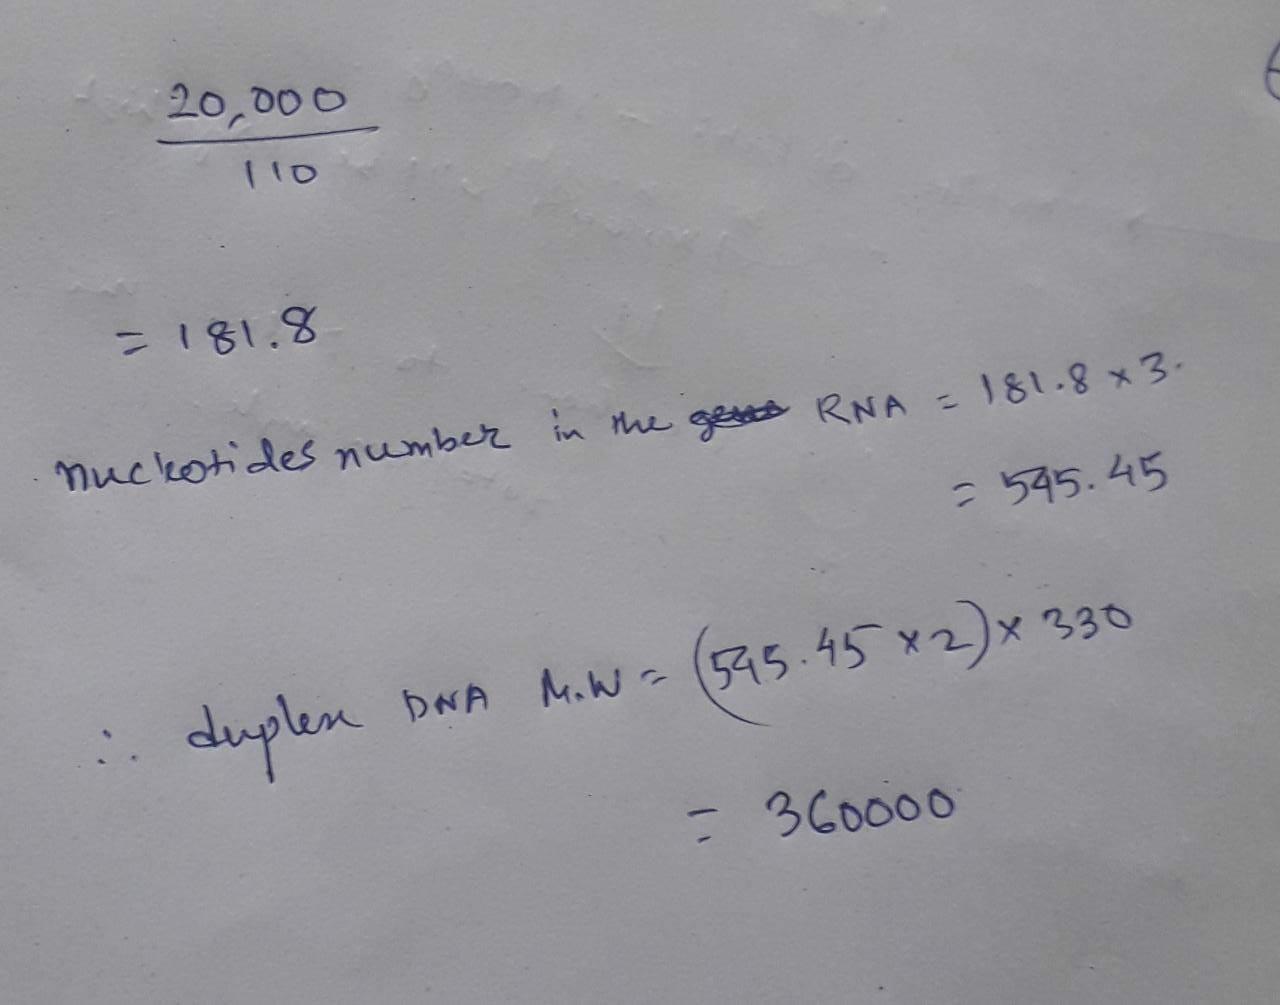 20,000
110
= 181.8
nucleotides number in the RNA = 181.8 x 3.
= 545.45
∴ duplex DNA M.W = (545.45 x 2) x 330
= 360000